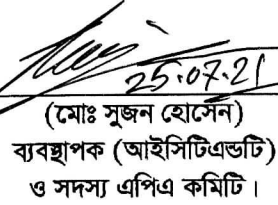 25.07.21
(মোঃ সুজন হোসেন)
ব্যবস্থাপক (আইসিটিএন্ডটি)
ও সদস্য এপিএ কমিটি।